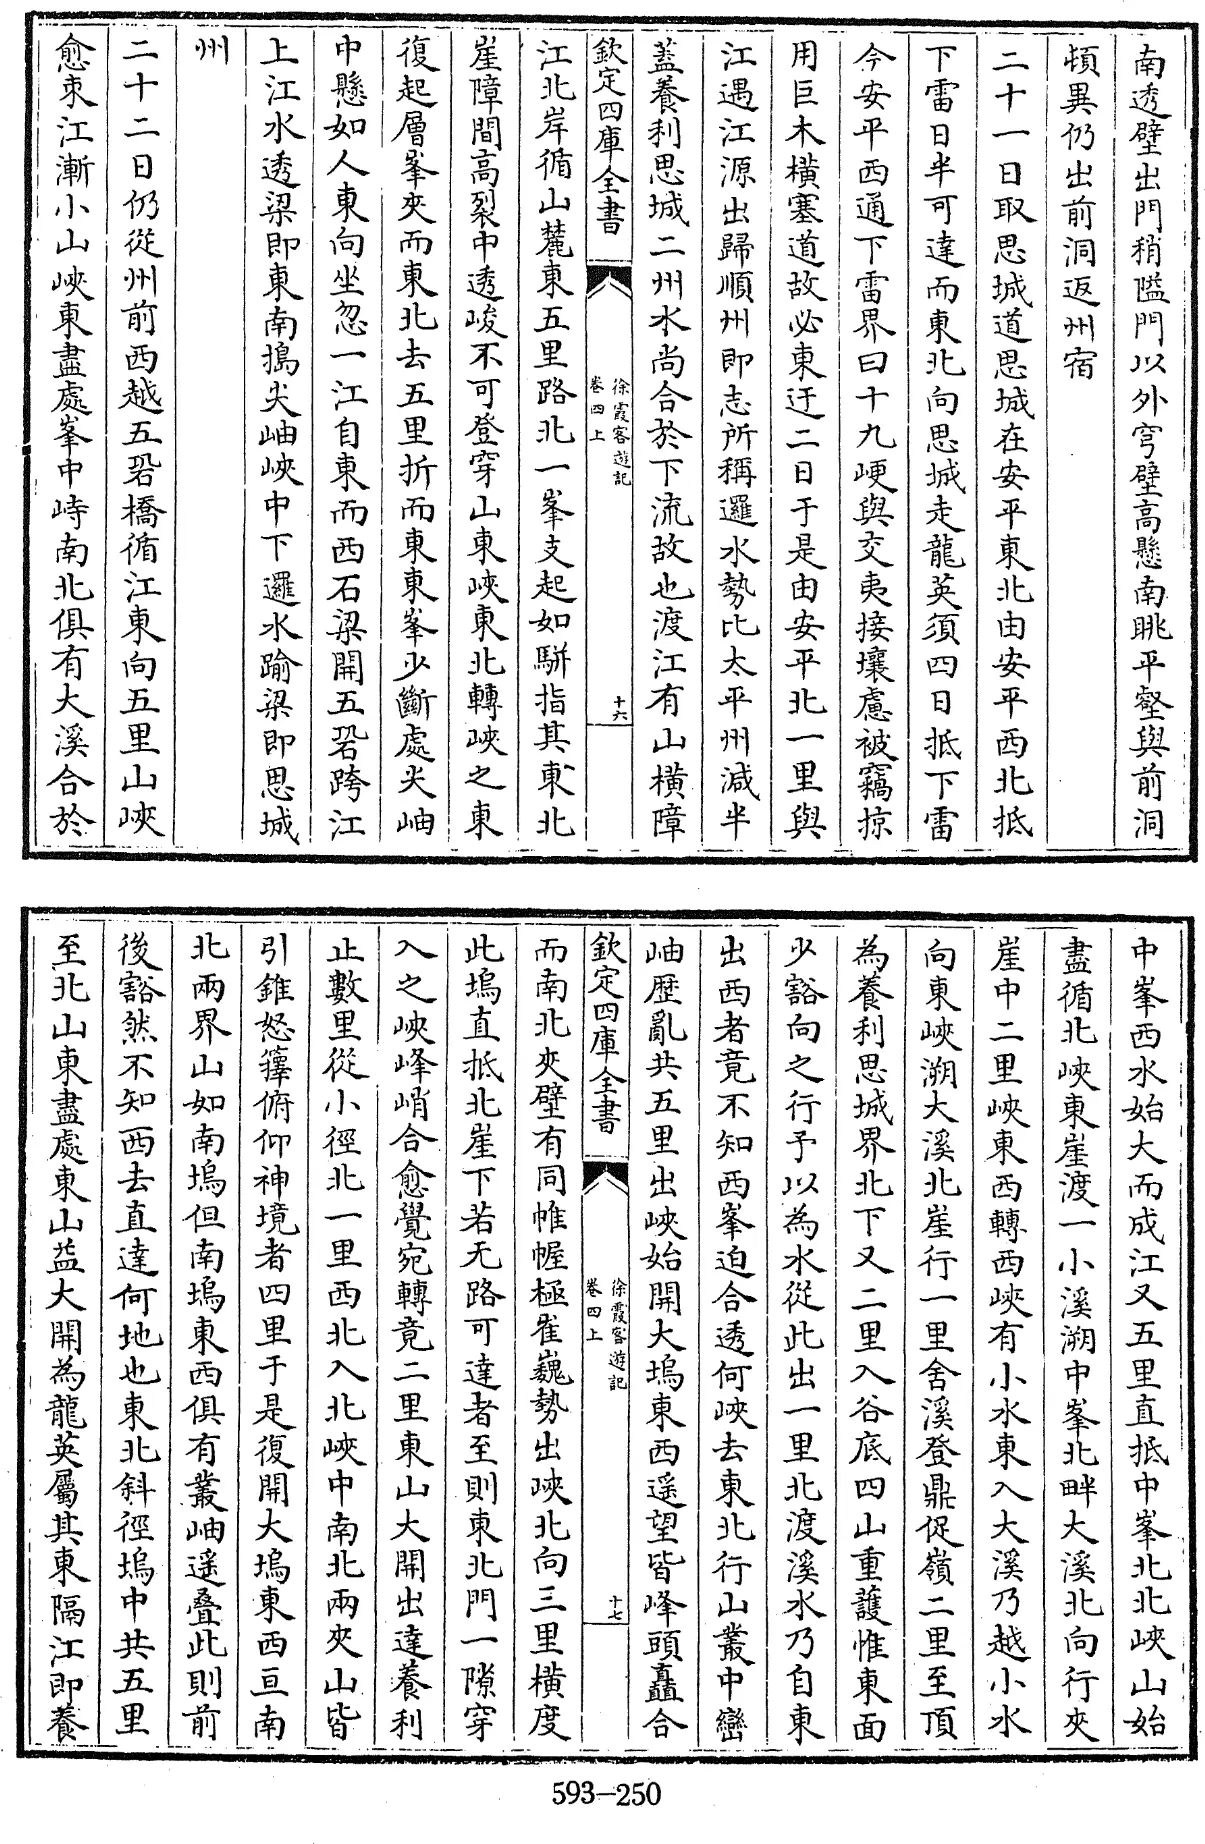 南透壁出門稍隘門以外穹壁高懸南眺平壑與前洞
頓異仍出前洞返州宿
二十一日取思城道思城在安平東北由安平西北抵
下雷日半可達而東北向思城走龍英須四日抵下雷
今安平西通下雷界曰十九峺與交夷接壤慮被竊掠
用巨木橫塞道故必東迂二日于是由安平北一里與
江遇江源出歸順州即志所稱邏水勢比太平州減半
蓋養利思城二州水尚合於下流故也渡江有山橫障
欽定四庫全書
徐霞客遊記
卷四上
十六
江北岸循山麓東五里路北一峯支起如駢指其東北
崖障間高裂中透峻不可登穿山東峽東北轉峽之東
復起層峯夾而東北去五里折而東東峯少斷處尖岫
中懸如人東向坐忽一江自東而西石梁開五碧跨江
上江水透梁即東南搗尖岫峽中下邏水踰梁即思城
州
二十二日仍從州前西越五碧橋循江東向五里山峽
愈束江漸小山峽東盡處峯中峙南北俱有大溪合於
中峯西水始大而成江又五里直抵中峯北北峽山始
盡循北峽東崖渡一小溪溯中峯北畔大溪北向行夾
崖中二里峽東西轉西峽有小水東入大溪乃越小水
向東峽溯大溪北崖行一里舍溪登鼎促嶺二里至頂
為養利思城界北下又二里入谷底四山重護惟東面
少豁向之行予以為水從此出一里北渡溪水乃自東
出西者竟不知西峯迫合透何峽去東北行山叢中巒
岫歷亂共五里出峽始開大塢東西遥望皆峰頭矗合
欽定四庫全書
徐霞客遊記
卷四上
十七
而南北夾壁有同帷幄極崔巍勢出峽北向三里橫度
此塢直抵北崖下若无路可達者至則東北門一隙穿
入之峽峰峭合愈覺宛轉竟二里東山大開出達養利
止數里從小徑北一里西北入北峽中南北兩夾山皆
引錐怒籜俯仰神境者四里于是復開大塢東西亘南
北兩界山如南塢但南塢東西俱有叢岫遥疊此則前
後豁然不知西去直達何地也東北斜徑塢中共五里
至北山東盡處東山益大開為龍英屬其東隔江即養
593-250